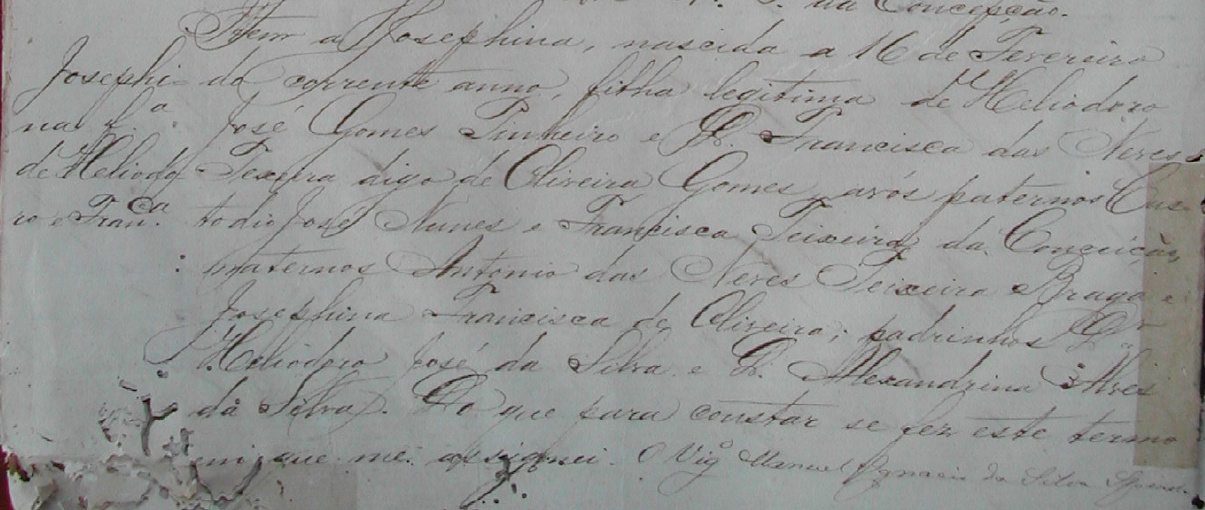 da Concepção.
Item a Josephina, nascida a 16 de Fevereiro
do corrente anno, filha legitima de Heliodoro
José Gomes Pinheiro e D. Francisca das Neves
Texeira digo de Oliveira Gomes, avós paternos Cus-
todio José Nunes e Francisca Teixeira da Conceição,
maternos Antonio das Neves Teixeira Braga e
Josephina Francisca de Oliveira; padrinhos Dr
Heliodoro José da Silva e D. Alexandrina Alves
da Silva. Do que para constar se fez este termo
em que me assignei. O Vigº Manuel Ignacio da Silva
Josephi-
na f.ª
de Heliodo-
ro e Fran.ca